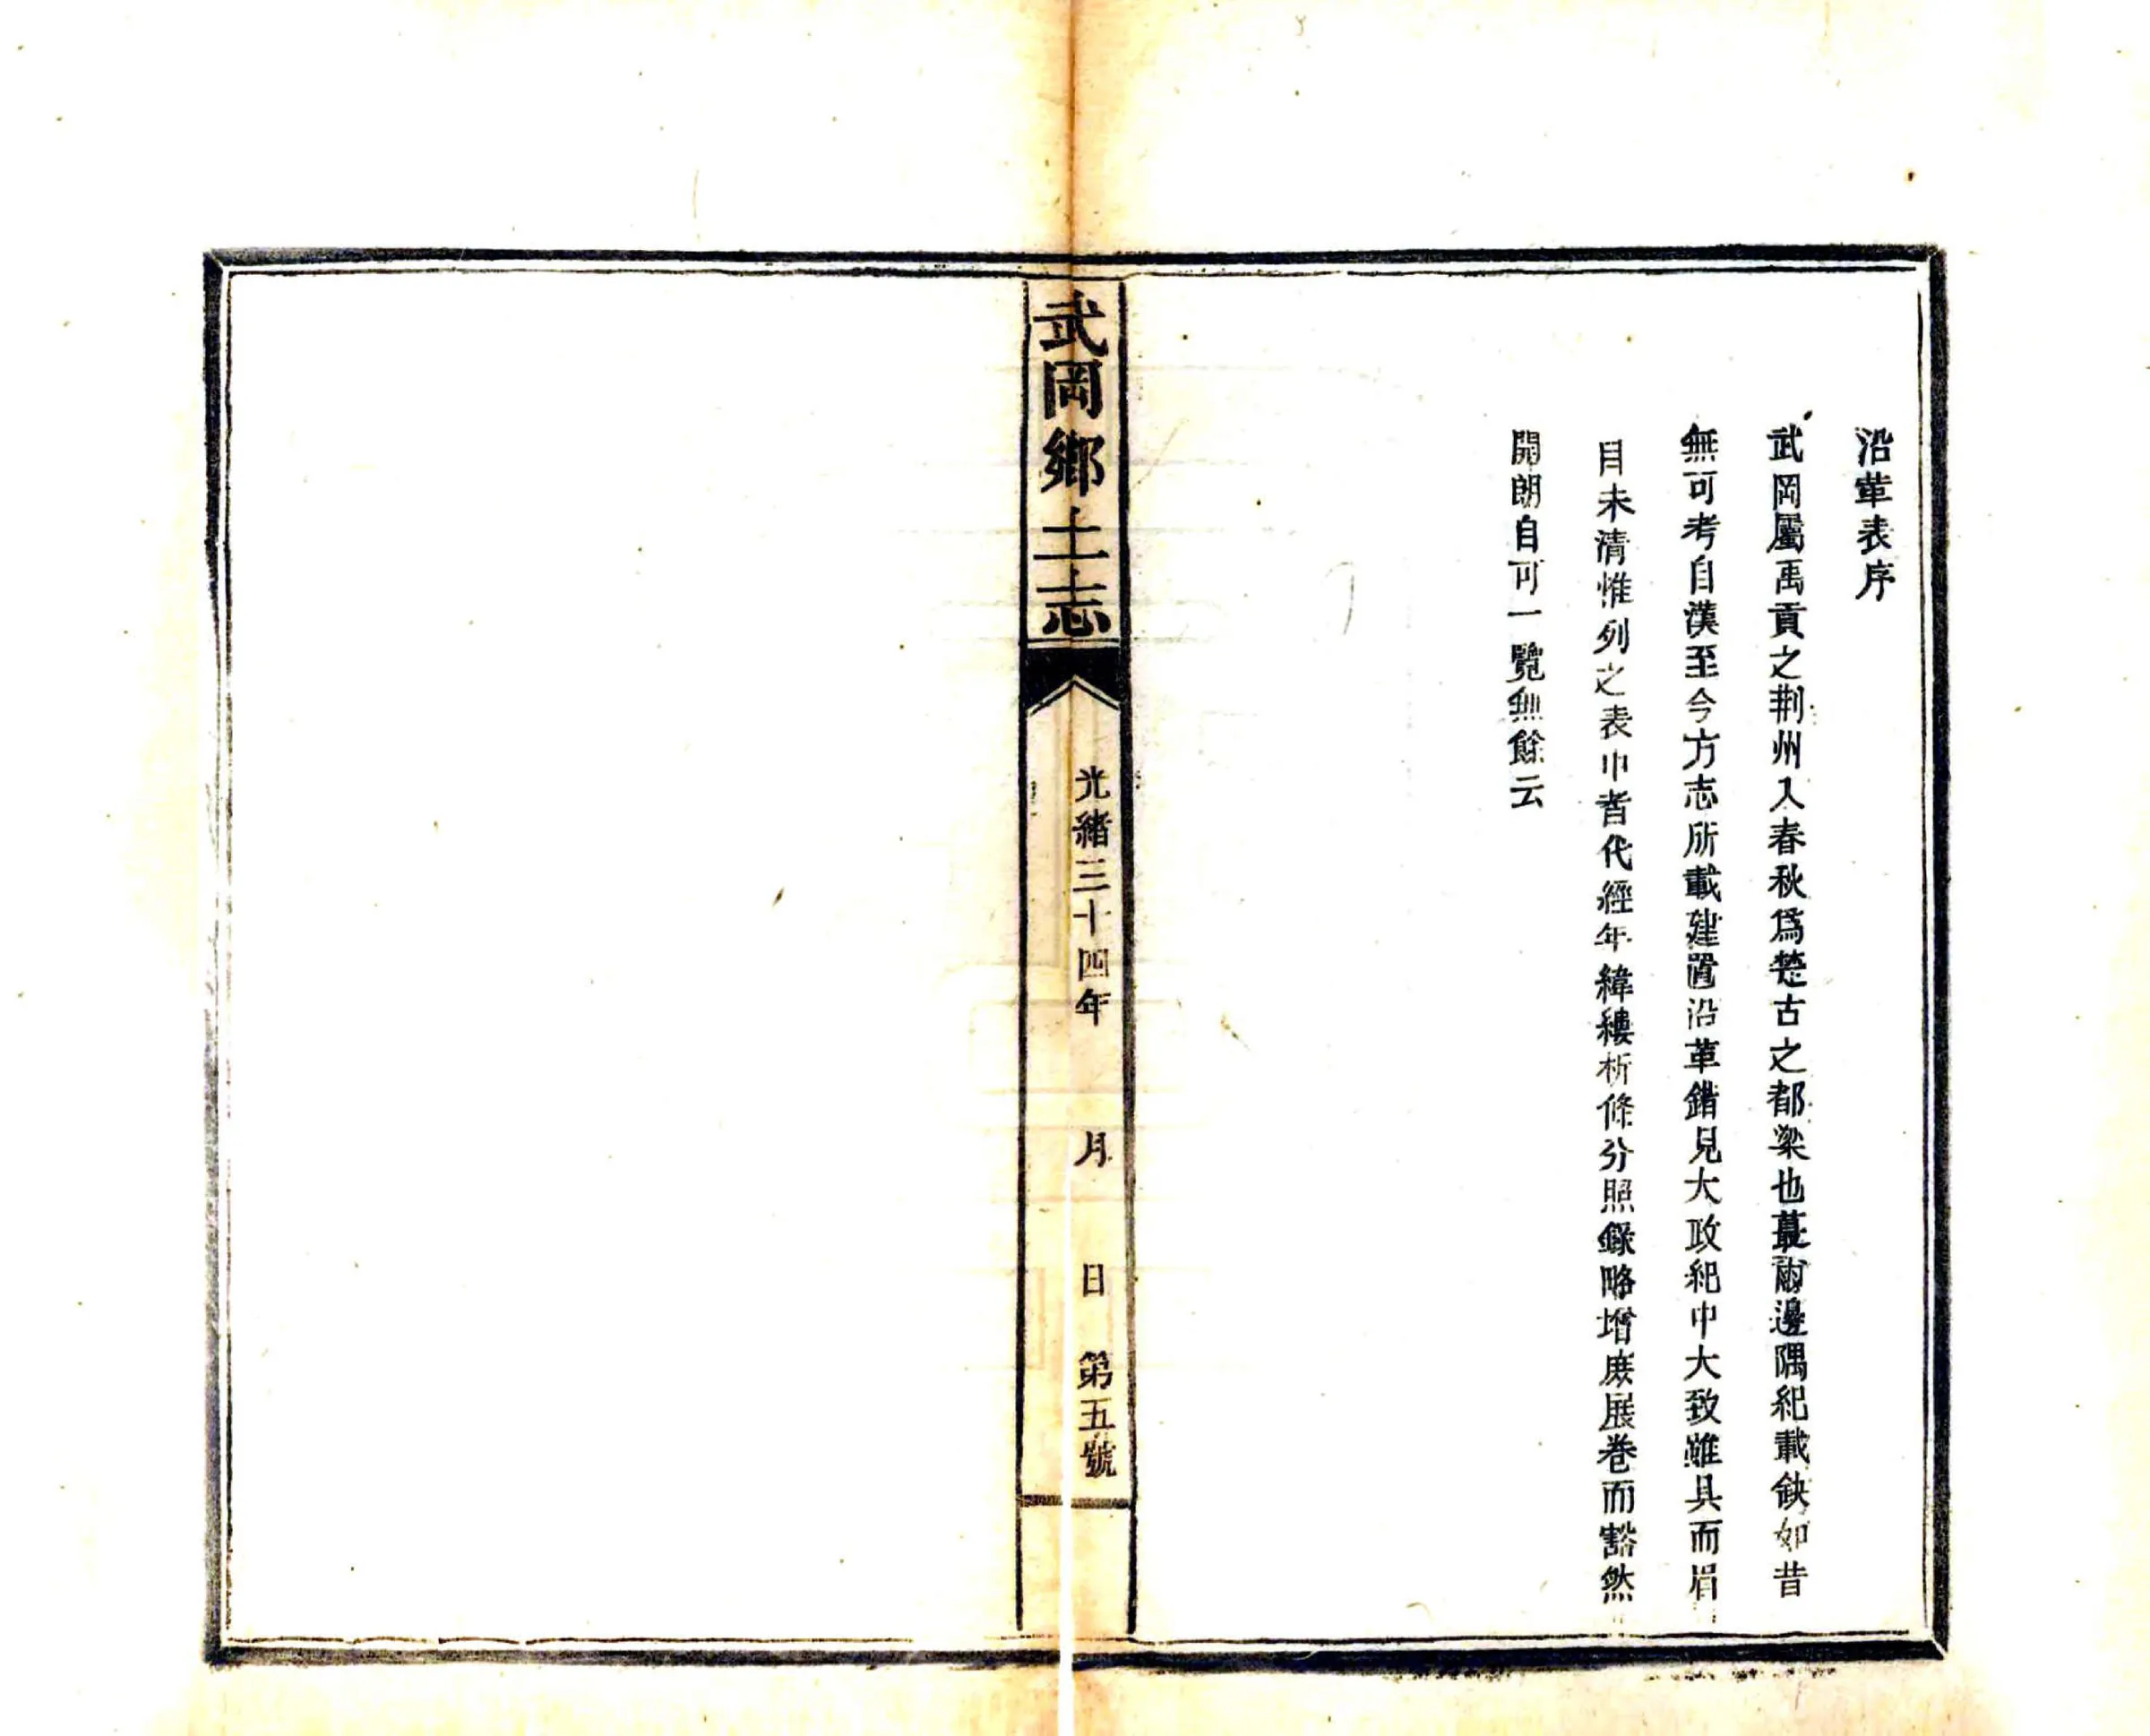 沿革表序
武岡屬禹貢之荆州入春秋爲楚古之都梁也蕞爾邊隅紀載缺如昔
無可考自漢至今方志所載建置沿革錯見大政紀中大致雖具而眉
目未清惟列之表巾者代經年緯縷析條分照錄略增庶展卷而豁然
開朗自可一覽無餘云
武岡鄉土志
光緒三十四年 月 日 第五號